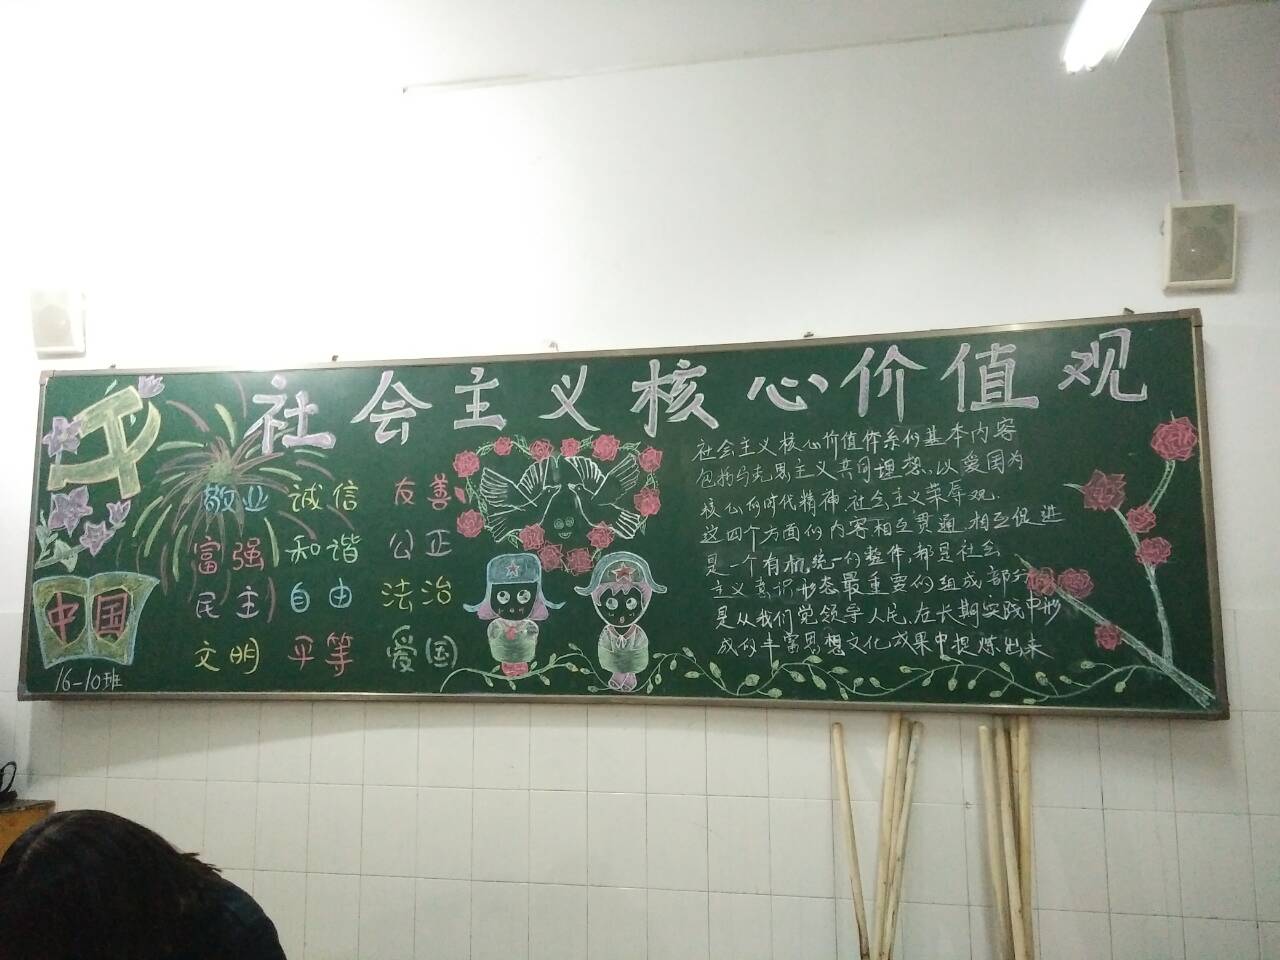 社会主义核心价值观
敬业 诚信 友善
富强 和谐 公正
民主 自由 法治
文明 平等 爱国
中国
16-10班
社会主义核心价值体系的基本内容
包括马克思主义共同理想、以爱国为
核心的时代精神 社会主义荣辱观.
这四个方面的内容相互贯通 相互促进
是一个有机统一的整体,都是社会
主义意识形态最重要的组成部分
是从我们党领导人民,在长期实践中形
成的丰富思想文化成果中提炼出来